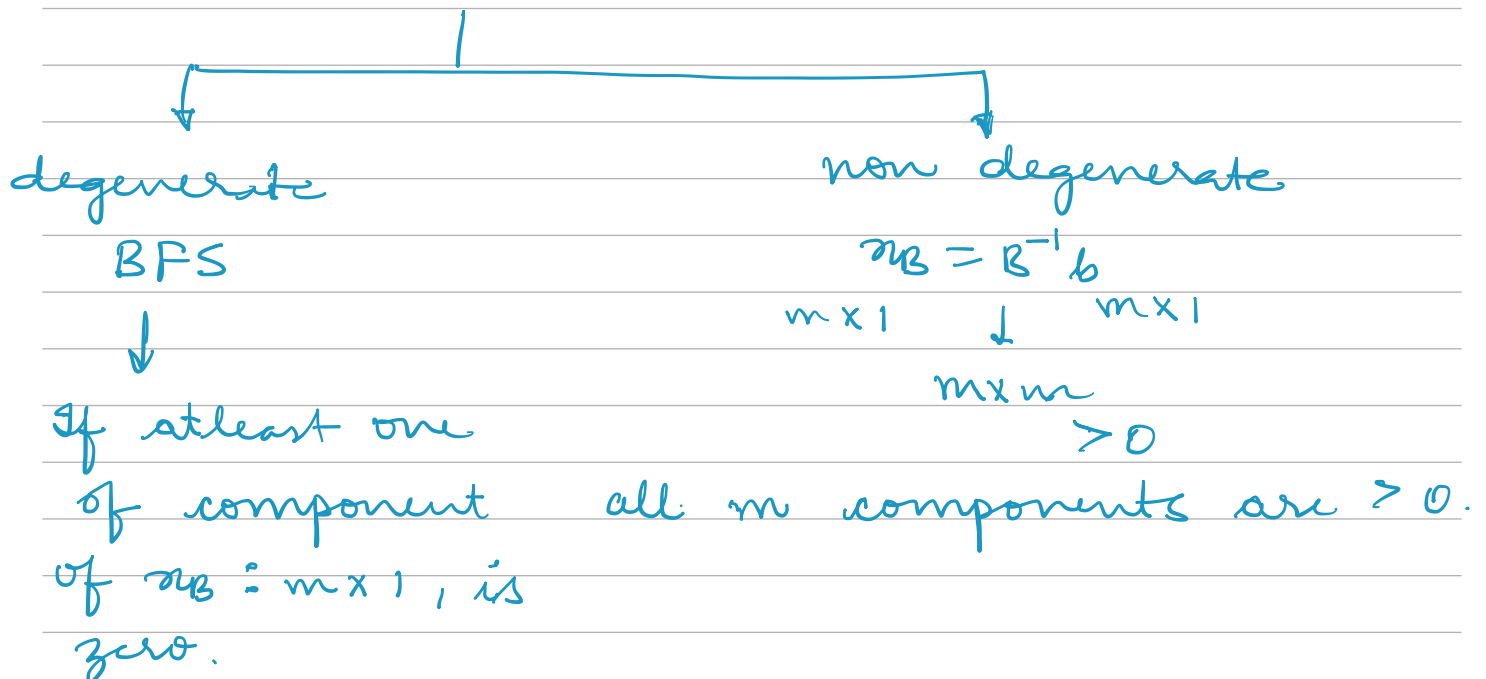 degenerate
BFS
If atleast one
of component
of x_B : m × 1, is
zero.
non degenerate
x_B = B^{-1} b
m × 1 m × 1
m × m
> 0
all m components are > 0.